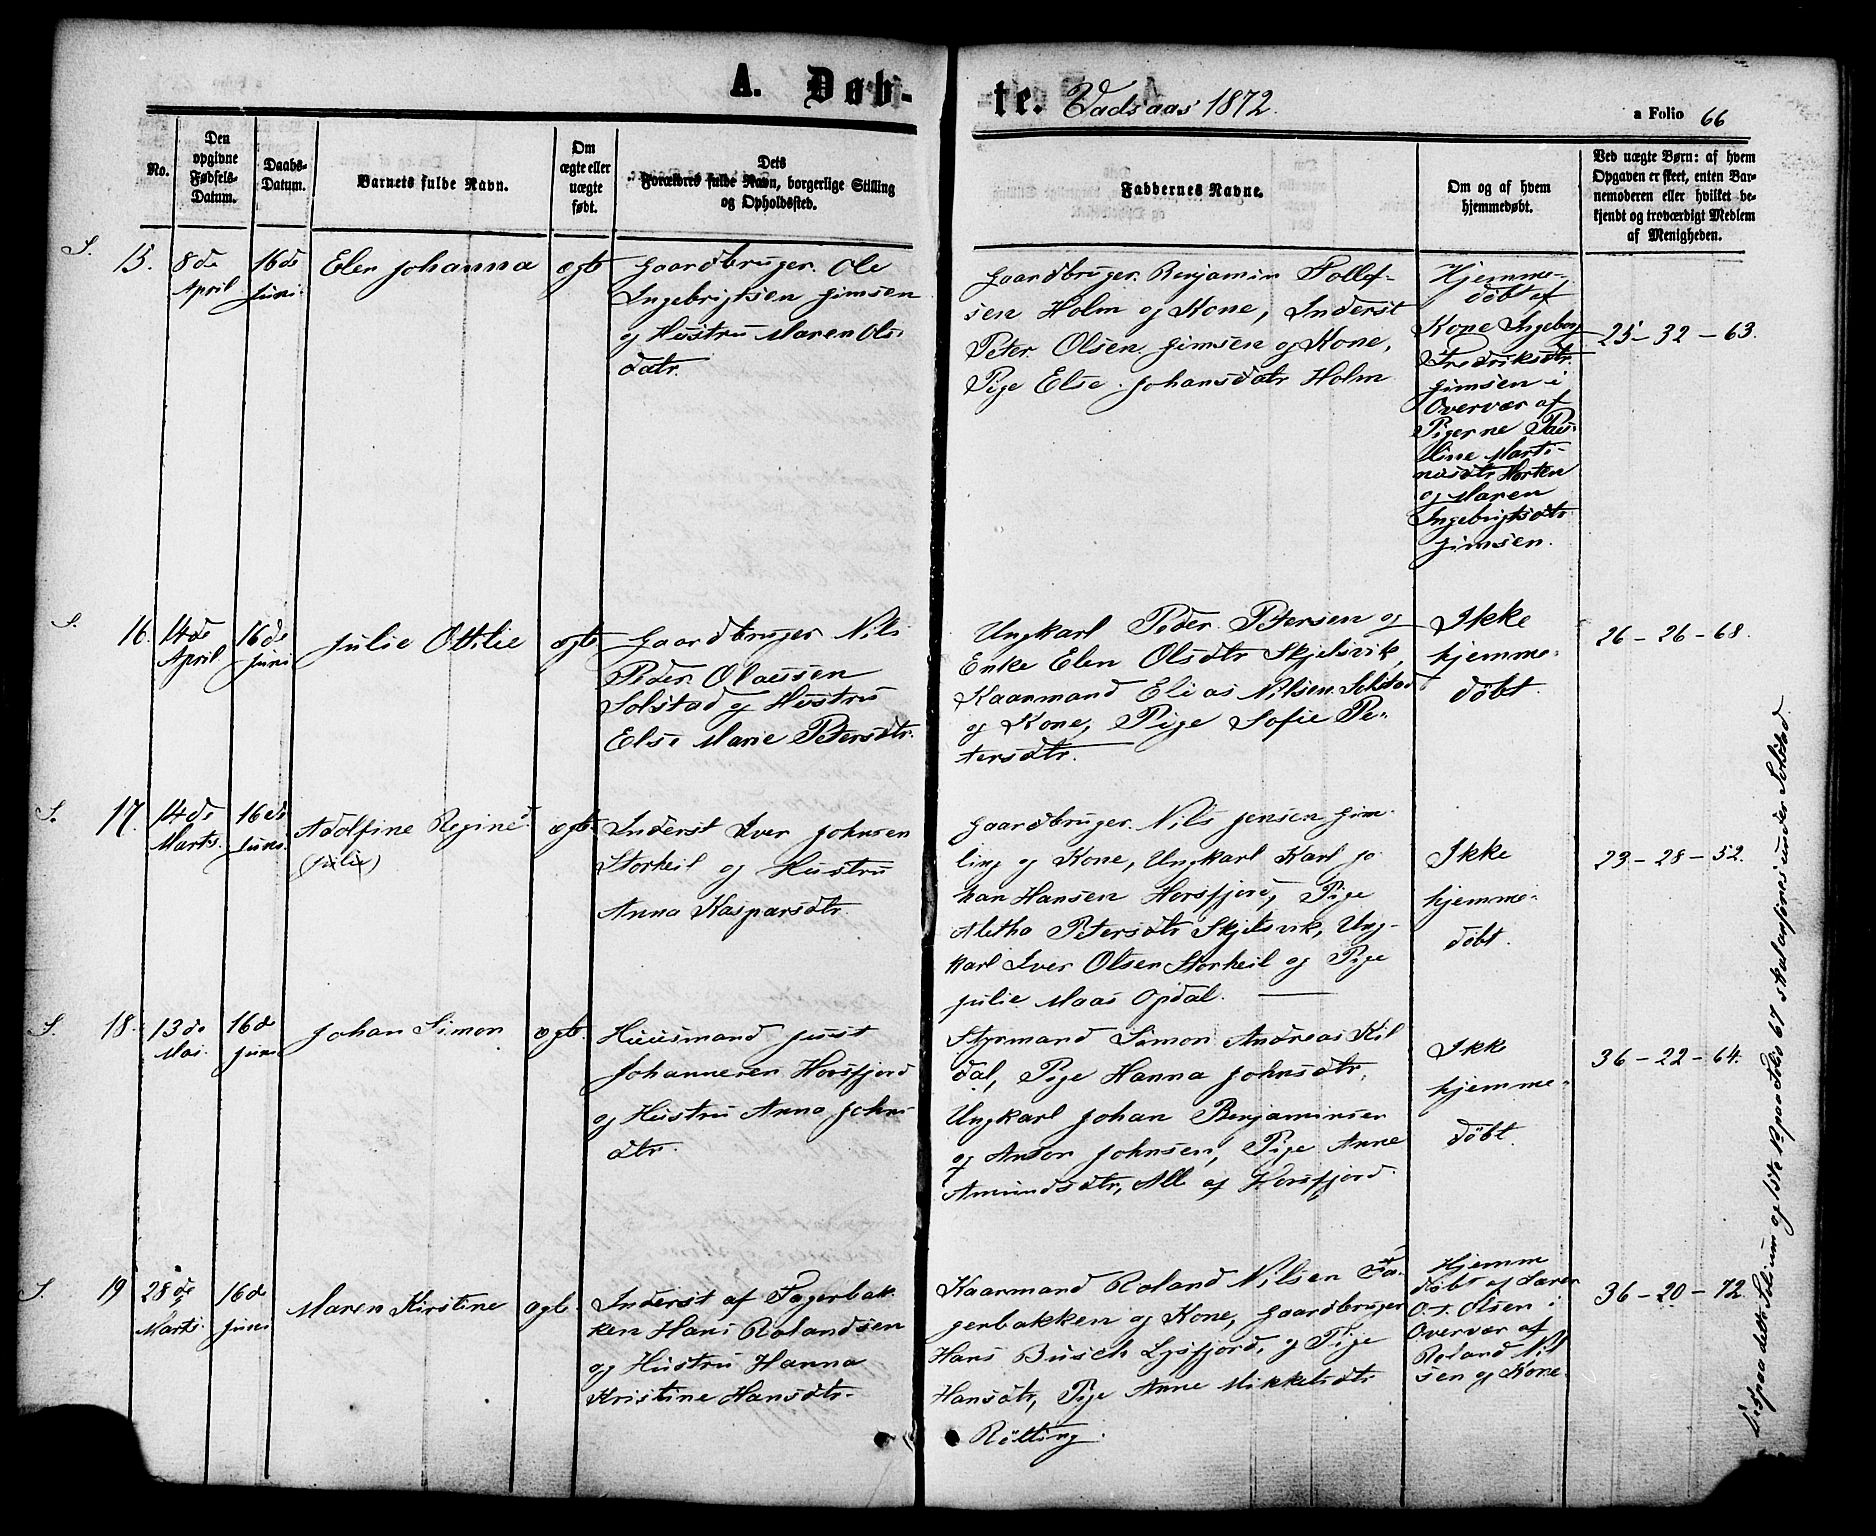 A. Døb-
te. Vadsaas 1872.
a Folio 66
No.
Den
opgivne
Fødsels-
Datum.
Daabs-
Datum.
Barnets fulde Navn.
Om
ægte eller
uægte
født.
Dets
Forældres fulde Navn, borgerlige Stilling
og Opholdssted.
Faddernes Navne.
Om og af hvem
hjemmedøbt.
Ved uægte Børn: af hvem
Opgaven er skeet, enten Bar-
nemoderen eller hvilket be-
kjendt og troværdigt Medlem
af Menigheden.
S. 15.
8de
April
16de
Juni.
Elen Johanna
ægte
Gaardbruger Ole
Ingebrigtsen Gimsen
og Hustru Maren Ols-
datr.
Gaardbruger Benjamin Tollef-
sen Holm og Kone, Inderst
Peter Olsen Gimsen og Kone,
Pige Else Johansdatr Holm
Hjemme-
døbt af
Kone Ingeborg
Fredriksdtr
Gimsen i
Overvær af
Pigerne Pau-
line Marti-
nusdtr Horten
og Maren
Ingebrigtsdtr
Gimsen.
25 - 32 - 63.
S. 16.
14de
April
16de
Juni
Julie Ottilie
ægte
Gaardbruger Nils
Peder Olaussen
Solstad og Hustru
Else Marie Petersdtr.
Ungkarl Peder Petersen og
Enke Elen Olsdtr Skjelsvik,
Kaarmand Elias Nilsen Solstad
og Kone, Pige Sofie Pe-
tersdtr.
Ikke
hjemme-
døbt.
26 - 26 - 68.
S. 17.
14de
Marts.
16de
Juni.
Adolfine Regine
(Julie)
ægte
Inderst Iver Johnsen
Storheil og Hustru
Anna Kaspersdtr.
Gaardbruger Nils Jensen Gim-
ling og Kone, Ungkarl Karl Jo
han Hansen Horsfjord, Pige
Aletha Petersdtr Skjelsvik, Ung-
karl Iver Olsen Storheil og Pige
Julie Maas Opdal.
Ikke
hjemme-
døbt.
23 - 28 - 52.
S. 18.
13de
Mai.
16de
Juni
Johan Simon
ægte
Huusmand Just
Johannesen Horsfjord
og Hustru Anna Johns
dtr.
Styrmand Simon Andreas Kil
dal, Pige Hanna Johnsdtr,
Ungkarl Johan Benjaminsen
og Anton Johnsen, Pige Anne
Amundsdtr, Alle af Horsfjord
Ikke
hjemme-
døbt.
36 - 22 - 64.
S. 19
28de
Marts.
16de
Juni
Maren Kirstine
ægte
Inderst af Fagerbak-
ken Hans Rolandsen
og Hustru Hanna
Kristine Hansdtr.
Kaarmand Roland Nilsen Fa-
gerbakken og Kone, Gaardbruger
Hans Busch Lysfjord, og Pige
Hansdtr, Pige Anne Mikkelsdtr
Røtting.
Hjemme
døbt af
Olsen i
Overvær af
Roland Nil
sen og Kone.
36 - 20 - 72.
paa dette Folium og 1ste R. paa Folio 67 skal anføres under Solstad